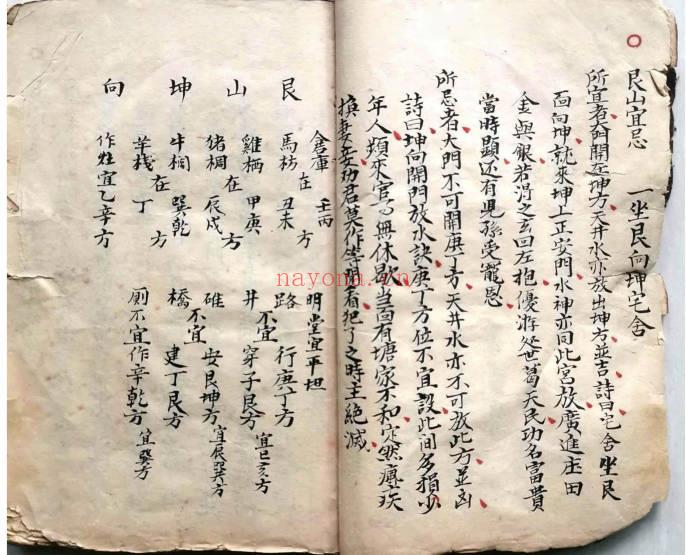 艮山宜忌 一坐艮向坤宅舍
所宜者門開在坤方天井水亦放出坤方並吉詩曰宅舍坐艮
面向坤就來坤上正安門水神亦向此宮放廣進庄田
金與銀若得之玄回左抱優游処世葛天民功名富貴
當時顯还有児孫受寵恩
所忌者大門不可開庚丁方天井水亦不可放此方並凶
詩曰坤向開門放水訣庚丁方位不宜設此间多損少
年人類來官司無休歇当面有塘家不和定然瘫疾
換妻妾劝君莫作等閒看犯了之時主絶滅
艮山坤向
倉庫在壬丙方
馬枋在丑未方
雞栖在甲庚方
猪椆在辰戌方
牛椆在巽乾方
羊棧在丁方
作灶宜乙辛方
明堂宜平坦
路不宜行庚丁方
井不宜穿子艮方宜巳亥方
碓不宜安艮坤方宜辰巽方
橋不宜建丁艮方
厠不宜作辛乾方宜癸方
nayona.cn